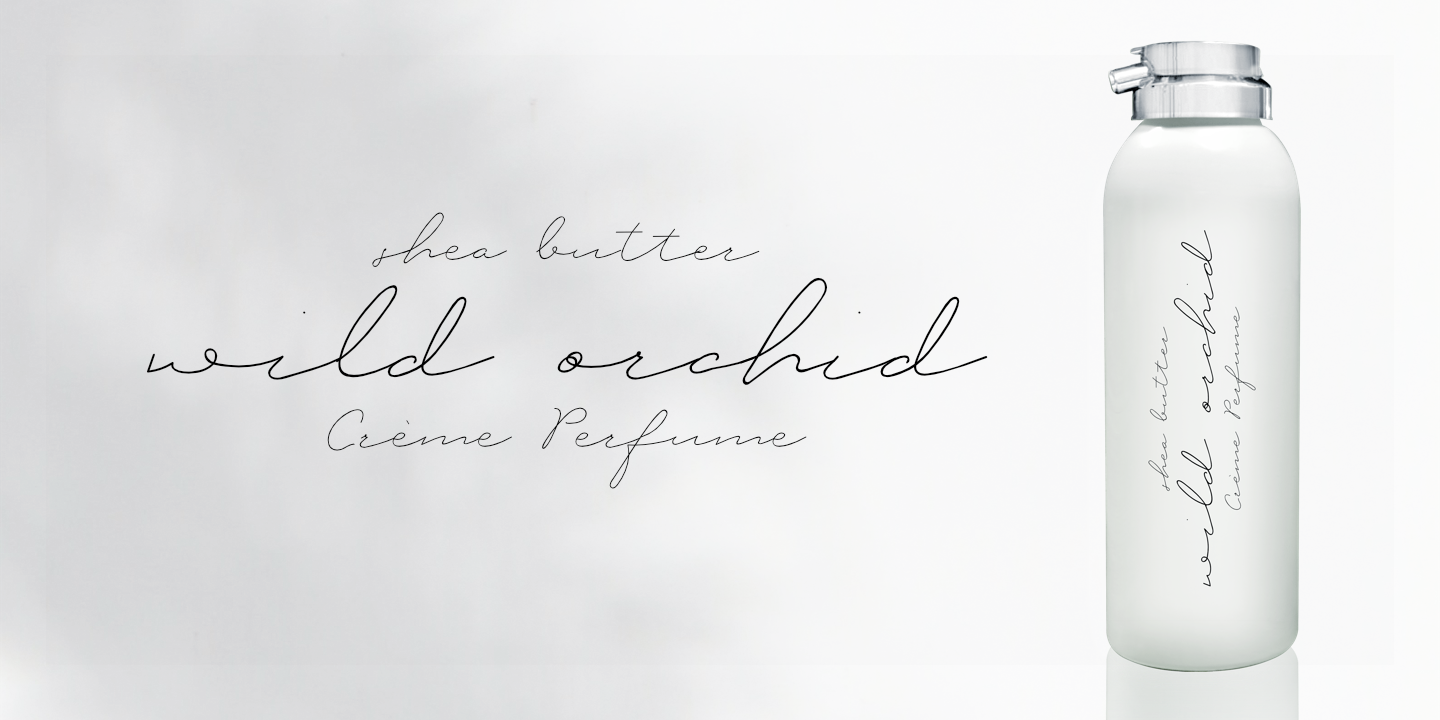 shea butter
wild orchid
Crème Perfume
shea butter
wild orchid
Crème Perfume